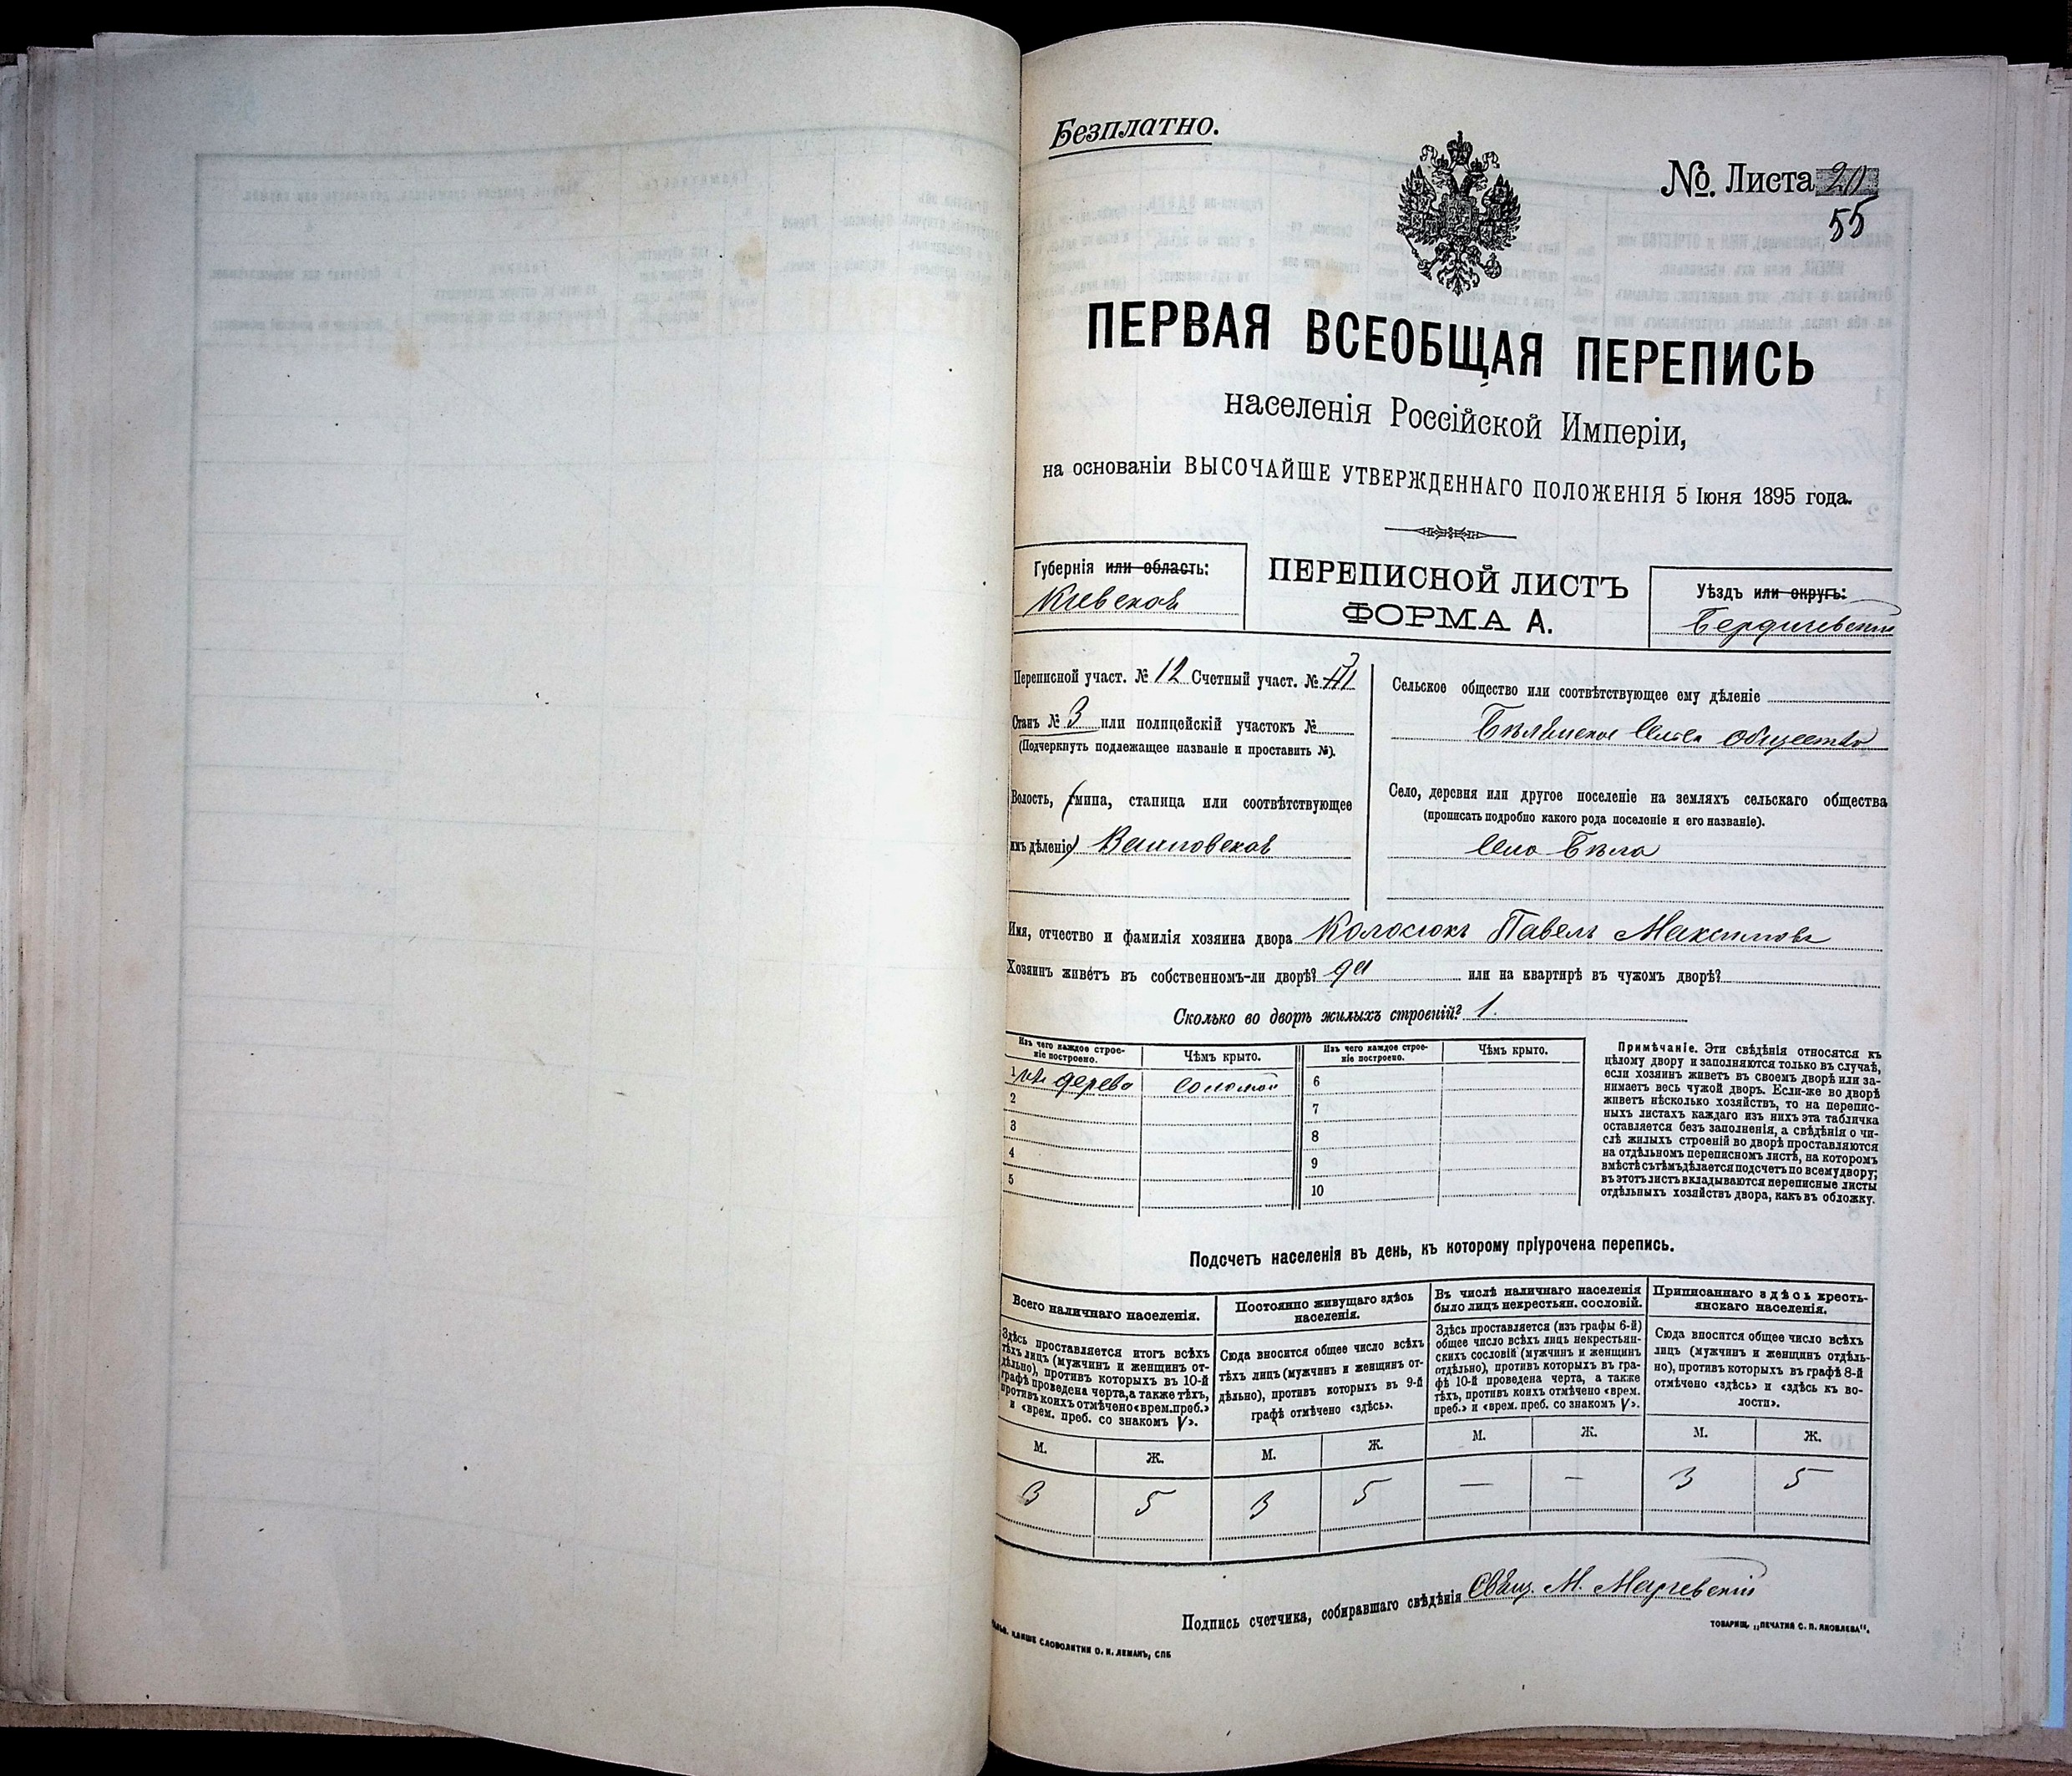 Безплатно.
№. Листа 20
55
ПЕРВАЯ ВСЕОБЩАЯ ПЕРЕПИСЬ
населенія Россійской Имперіи,
на основаніи ВЫСОЧАЙШЕ УТВЕРЖДЕННАГО ПОЛОЖЕНІЯ 5 Іюня 1895 года.
Губернія или область:
Кіевская
ПЕРЕПИСНОЙ ЛИСТЪ
ФОРМА А.
Уѣздъ или округъ:
Бердичевскій
Переписной участ. № 12 Счетный участ. № 3
Станъ № 3 или полицейскій участокъ №
(Подчеркнуть подлежащее названіе и проставить №).
Волость, (гмина, станица или соотвѣтствующее
имъ дѣленіе)
Сельское общество или соотвѣтствующее ему дѣленіе
общество
Село, деревня или другое поселеніе на земляхъ сельскаго общества
(прописать подробно какого рода поселеніе и его названіе).
Село Бѣла
Имя, отчество и фамилія хозяина двора Колосюкъ Павелъ Максимовъ
Хозяинъ живетъ въ собственномъ-ли дворѣ? да или на квартирѣ въ чужомъ дворѣ?
Сколько во дворѣ жилыхъ строеній? 1.
Изъ чего каждое строе-
ніе построено.
Чѣмъ крыто.
Изъ чего каждое строе-
ніе построено.
Чѣмъ крыто.
1 изъ дерева соломой 6
2 7
3 8
4 9
5 10
Примѣчаніе. Эти свѣдѣнія относятся къ
цѣлому двору и заполняются только въ случаѣ,
если хозяинъ живетъ въ своемъ дворѣ или за-
нимаетъ весь чужой дворъ. Если-же во дворѣ
живетъ нѣсколько хозяйствъ, то на перепис-
ныхъ листахъ каждаго изъ нихъ эта табличка
оставляется безъ заполненія, а свѣдѣнія о чи-
слѣ жилыхъ строеній во дворѣ проставляются
на отдѣльномъ переписномъ листѣ, на которомъ
вмѣстѣ съ тѣмъ дѣлается подсчетъ по всему двору;
въ этотъ листъ вкладываются переписные листы
отдѣльныхъ хозяйствъ двора, какъ въ обложку.
Подсчетъ населенія въ день, къ которому пріурочена перепись.
Всего наличнаго населенія.
Здѣсь проставляется итогъ всѣхъ
тѣхъ лицъ (мужчинъ и женщинъ от-
дѣльно), противъ которыхъ въ 10-й
графѣ проведена черта, а также тѣхъ,
противъ коихъ отмѣчено «врем. преб.»
и «врем. преб. со знакомъ V».
Постоянно живущаго здѣсь
населенія.
Сюда вносится общее число всѣхъ
тѣхъ лицъ (мужчинъ и женщинъ от-
дѣльно), противъ которыхъ въ 9-й
графѣ отмѣчено «здѣсь».
Въ числѣ наличнаго населенія
было лицъ некрестьян. сословій.
Здѣсь проставляется (изъ графы 6-й)
общее число всѣхъ лицъ некрестьян-
скихъ сословій (мужчинъ и женщинъ
отдѣльно), противъ которыхъ въ гра-
фѣ 10-й проведена черта, а также
тѣхъ, противъ коихъ отмѣчено «врем.
преб.» и «врем. преб. со знакомъ V».
Приписаннаго здѣсь кресть-
янскаго населенія.
Сюда вносится общее число всѣхъ
лицъ (мужчинъ и женщинъ отдѣль-
но), противъ которыхъ въ графѣ 8-й
отмѣчено «здѣсь» и «здѣсь къ во-
лости».
М. Ж. М. Ж. М. Ж. М. Ж.
3 5 3 5 — — 3 5
Подпись счетчика, собиравшаго свѣдѣнія Свящ. М.
КЛИШЕ СЛОВОЛИТНИ О. И. ЛЕМАНЪ, СПБ
ТОВАРИЩ. „ПЕЧАТНЯ С. П. ЯКОВЛЕВА“.